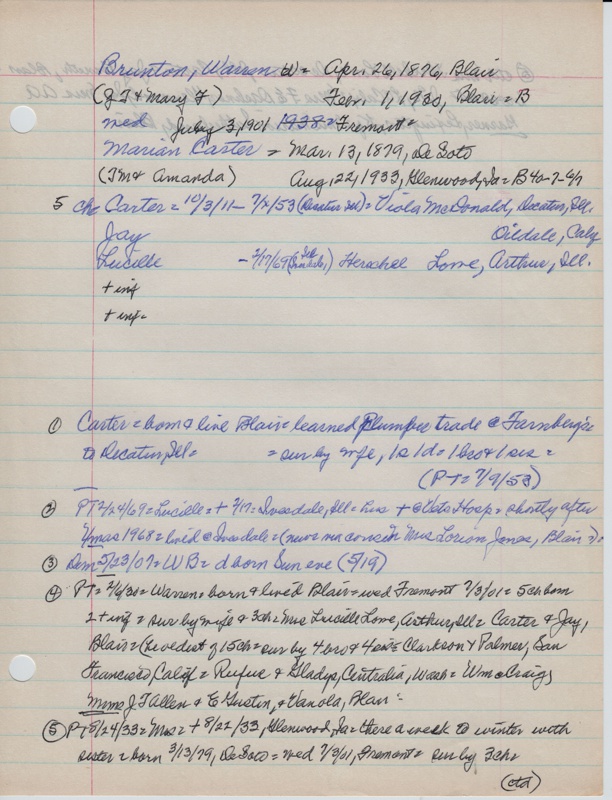 Brunton, Warren W = Apr. 26, 1876, Blair
(J T & Mary F) Feb. 1, 1930, Blair = B
wed July 3, 1901 Fremont =
Marian Carter = Mar. 13, 1879, De Soto
(T M & Amanda) Aug. 22, 1933, Glenwood, Ia = B 40-7-6/7
5 ch Carter = 10/3/11 - 7/2/53 (Decatur Ill) = Viola McDonald, Decatur, Ill.
Jay Oildale, Calif
Lucille - 2/17/69 Herschel Lowe, Arthur, Ill.
+ inf
+ inf -
① Carter = born & live Blair = learned Plumber trade @
to Decatur, Ill = = sur by wife, 1s 1d = 1 bro & 1 sis =
(P T = 7/9/53)
② P T 2/24/69 = Lucille = + 2/17 = Ill = hus + @ Vets Hosp = shortly after
Xmas 1968 = lived @ = Mrs Lorion Jones, Blair) =
③ Dem 5/23/07 = W B = d born Sun eve (5/19)
④ P T = 2/6/30 = Warren = born & live'd Blair = wed Fremont 7/3/01 = 5 ch born
2 + inf = sur by wife & 3 ch = Mrs Lucille Lowe, Arthur, Ill = Carter & Jay,
Blair = (he eldest of 15 ch = sur by 4 bro & 4 sis = Clarkson & Palmer, San
Francisco, Calif = Rufus & Gladys, Centralia, Wash = Wm Craig,
Mmes J T Allen & E Gustin, & Vanola, Blair =
⑤ P T 8/24/33 = Mrs = + 8/22/33, Glenwood, Ia = there a week to winter with
sister = born 3/13/79, De Soto = wed 7/3/01, Fremont = sur by 3 ch =
(ctd)